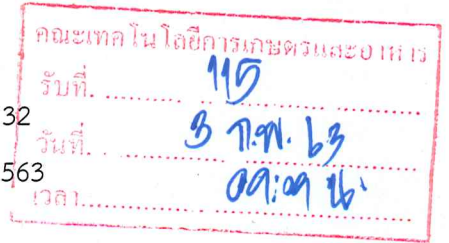 คณะเทคโนโลยีการเกษตรและอาหาร
รับที่. .......... 115
32
วันที่. .......... 3 ก.พ. 63
563
เวลา .......... 09:09 น.